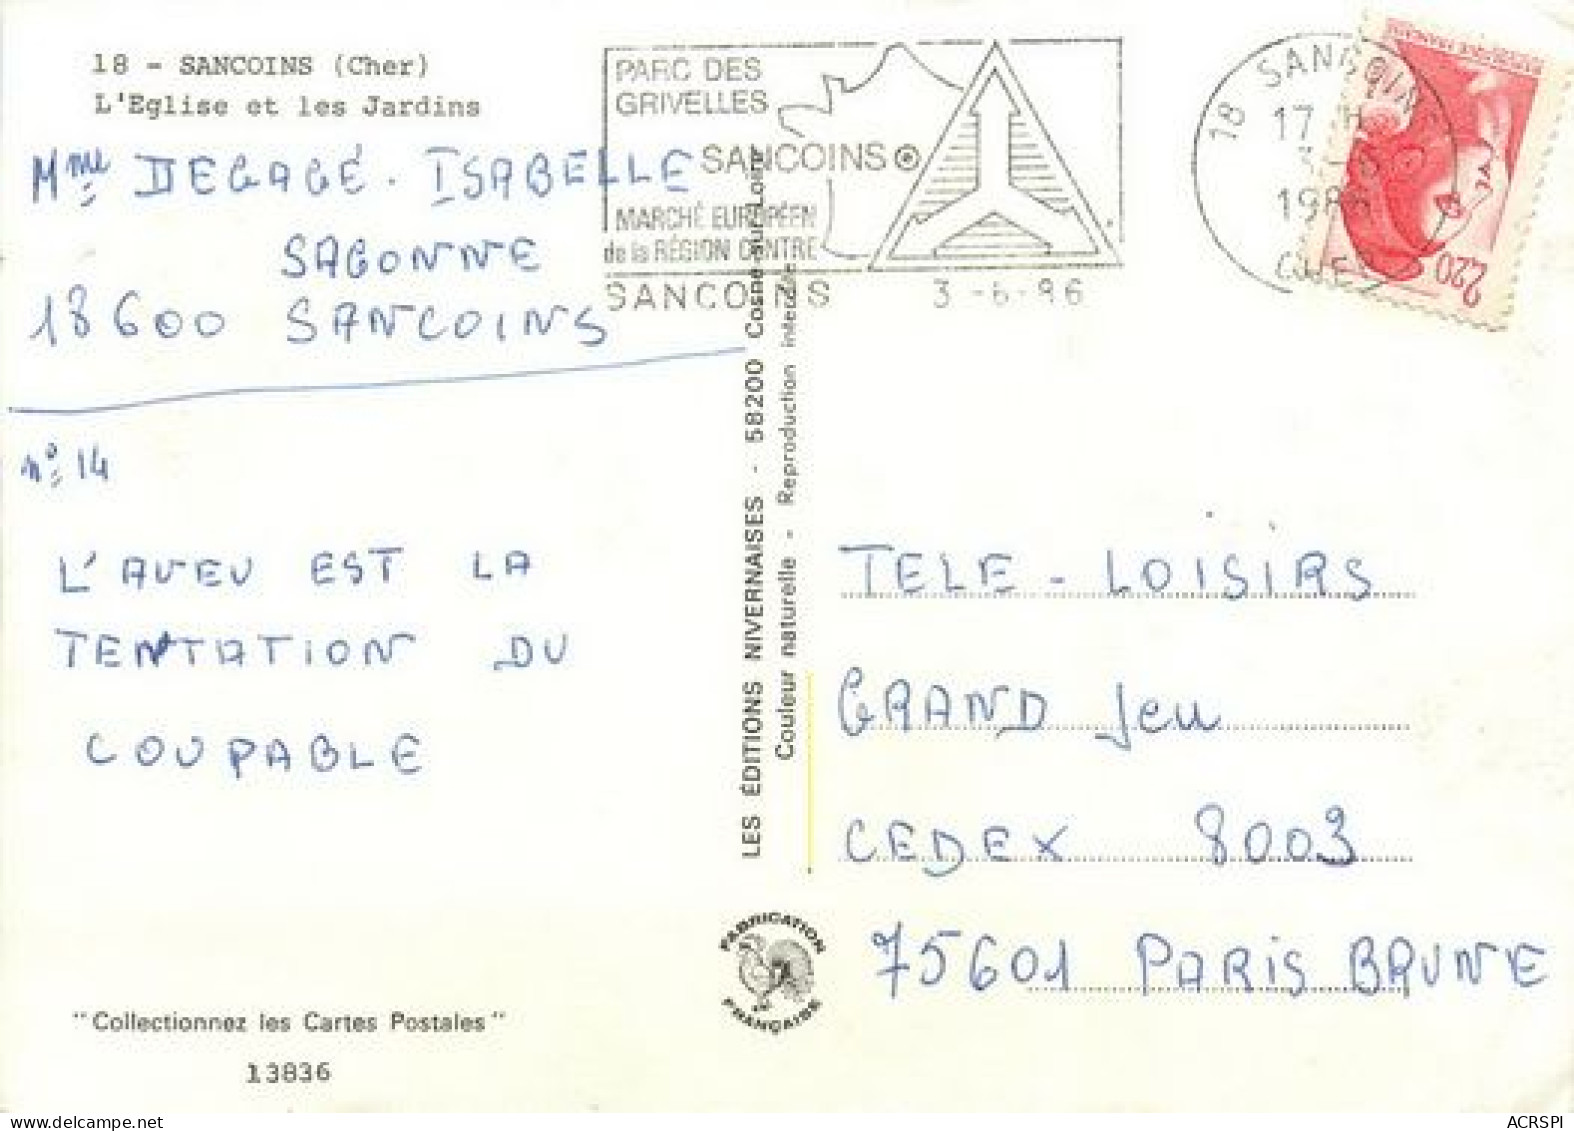 18 - SANCOINS (Cher)
L'Eglise et les Jardins
Mme DEGAGÉ. ISABELLE
SAGONNE
18600 SANCOINS
n° 14
L'AVEU EST LA
TENTATION DU
COUPABLE
"Collectionnez les Cartes Postales"
13836
PARC DES
GRIVELLES
SANCOINS
MARCHÉ EUROPÉEN
de la RÉGION CENTRE
SANCOINS 3-6-86
18 SANCOINS
17 H
3-6
1986
CHER
RÉPUBLIQUE FRANÇAISE
2,20
LES ÉDITIONS NIVERNAISES - 58200 Cosne-sur-Loire
Couleur naturelle - Reproduction interdite
FABRICATION
FRANÇAISE
TELE-LOISIRS
GRAND Jeu
CEDEX 8003
75601 PARIS BRUNE
ACRSPI